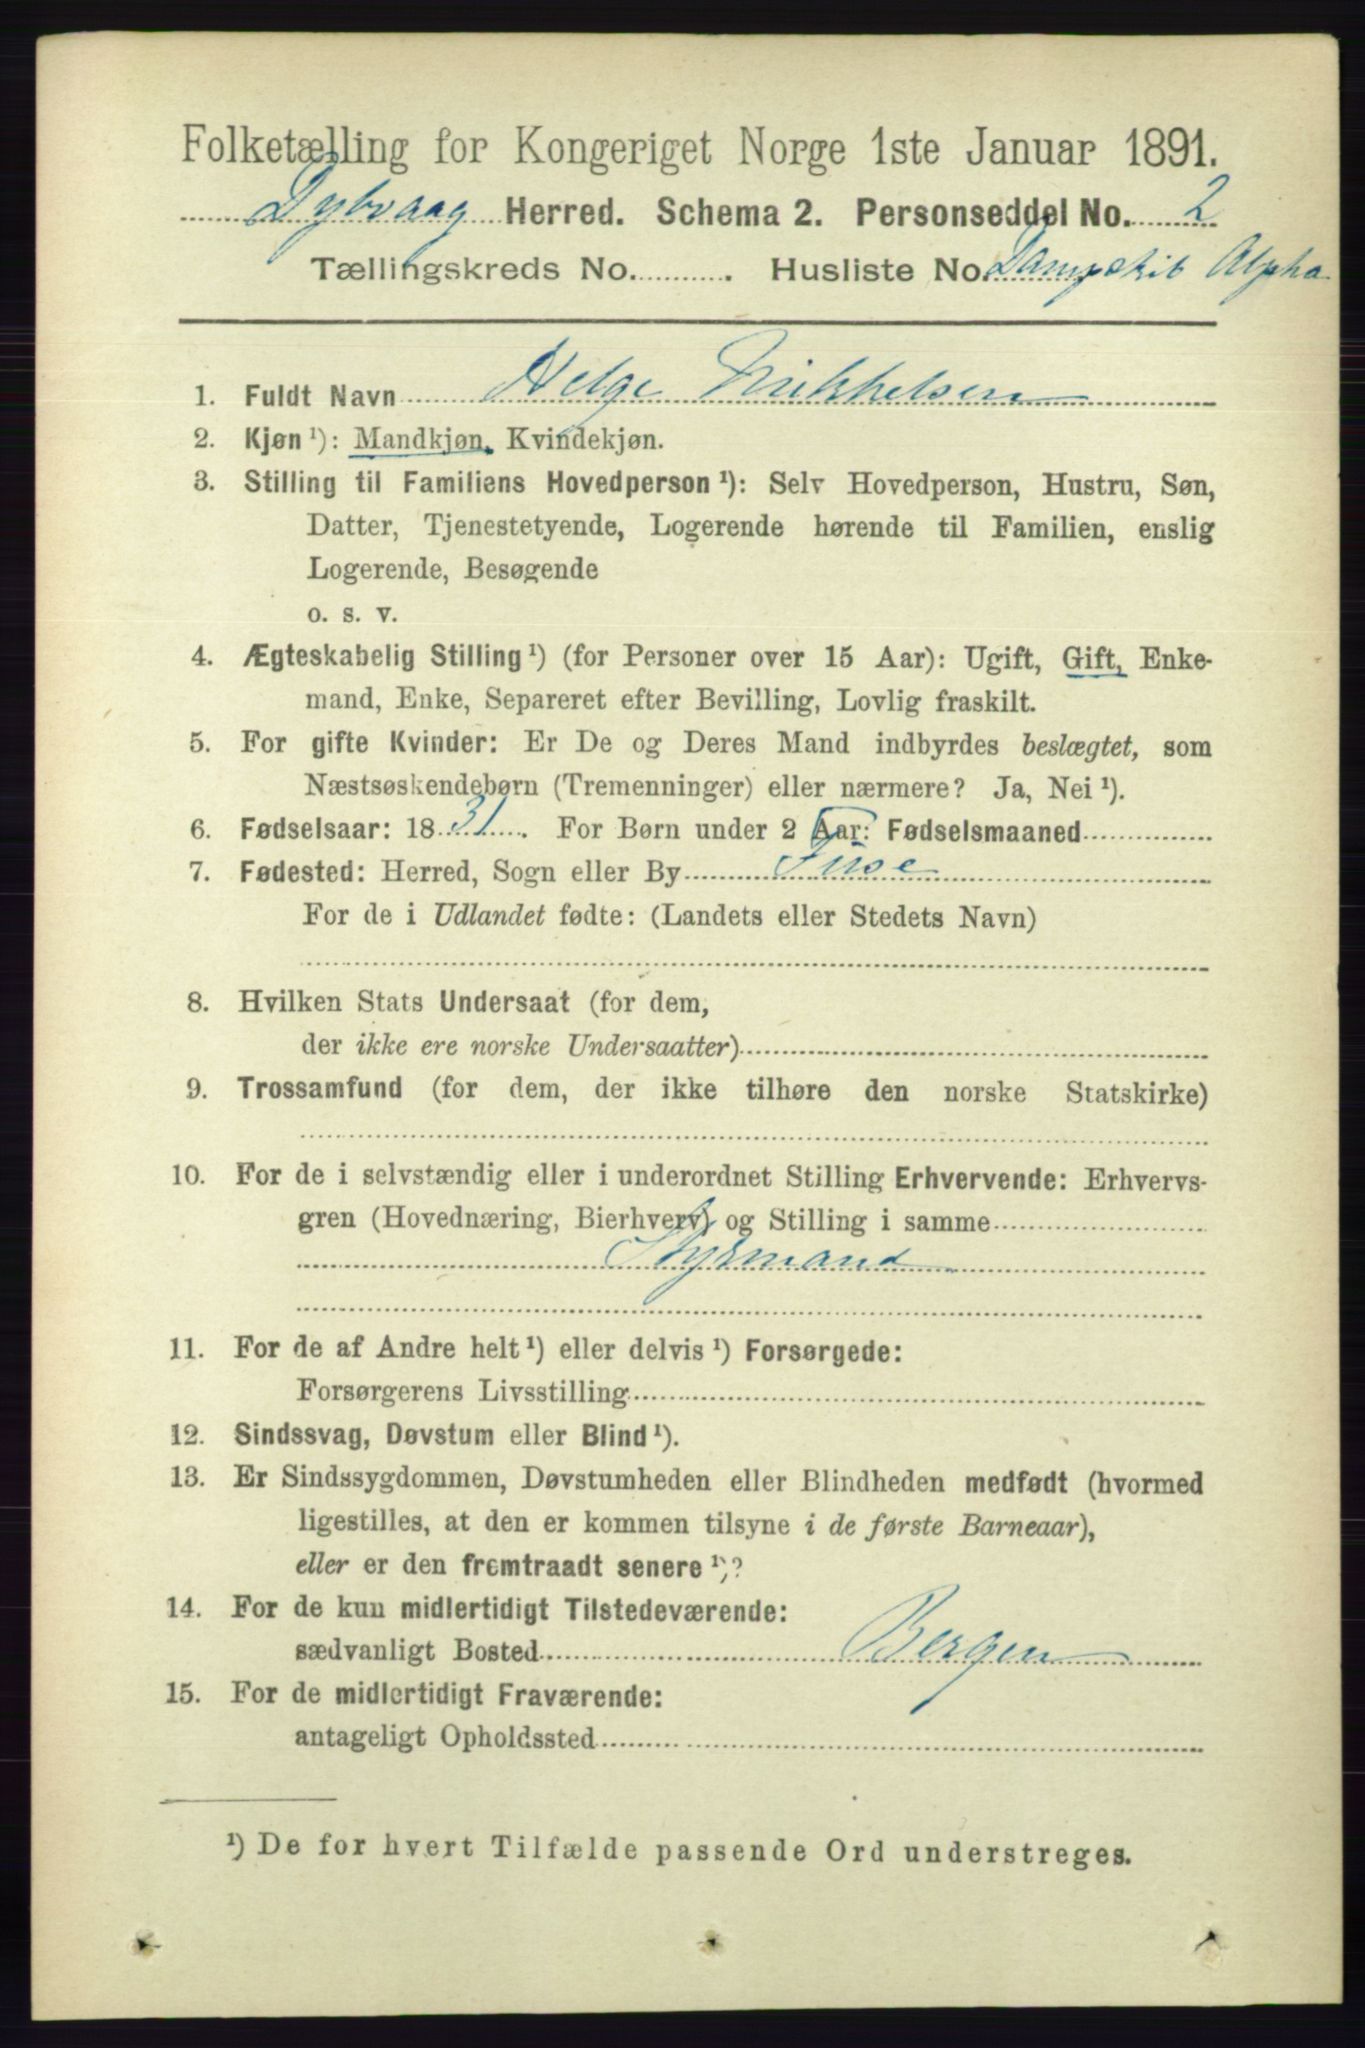 Folketælling for Kongeriget Norge 1ste Januar 1891.
Dybvaag Herred. Schema 2. Personseddel No. 2
Tællingskreds No. . Husliste No. Dampskib Alpha
1. Fuldt Navn Helge Mikkelsen
2. Kjøn ¹): Mandkjøn, Kvindekjøn.
3. Stilling til Familiens Hovedperson ¹): Selv Hovedperson, Hustru, Søn,
Datter, Tjenestetyende, Logerende hørende til Familien, enslig
Logerende, Besøgende
o. s. v.
4. Ægteskabelig Stilling ¹) (for Personer over 15 Aar): Ugift, Gift, Enke-
mand, Enke, Separeret efter Bevilling, Lovlig fraskilt.
5. For gifte Kvinder: Er De og Deres Mand indbyrdes beslægtet, som
Næstsøskendebørn (Tremenninger) eller nærmere? Ja, Nei ¹).
6. Fødselsaar: 1831. For Børn under 2 Aar: Fødselsmaaned
7. Fødested: Herred, Sogn eller By
For de i Udlandet fødte: (Landets eller Stedets Navn)
8. Hvilken Stats Undersaat (for dem,
der ikke ere norske Undersaatter)
9. Trossamfund (for dem, der ikke tilhøre den norske Statskirke)
10. For de i selvstændig eller i underordnet Stilling Erhvervende: Erhvervs-
gren (Hovednæring, Bierhverv) og Stilling i samme
Styrmand
11. For de af Andre helt ¹) eller delvis ¹) Forsørgede:
Forsørgerens Livsstilling
12. Sindssvag, Døvstum eller Blind ¹).
13. Er Sindssygdommen, Døvstumheden eller Blindheden medfødt (hvormed
ligestilles, at den er kommen tilsyne i de første Barneaar),
eller er den fremtraadt senere ¹)?
14. For de kun midlertidigt Tilstedeværende:
sædvanligt Bosted Bergen
15. For de midlertidigt Fraværende:
antageligt Opholdssted
¹) De for hvert Tilfælde passende Ord understreges.